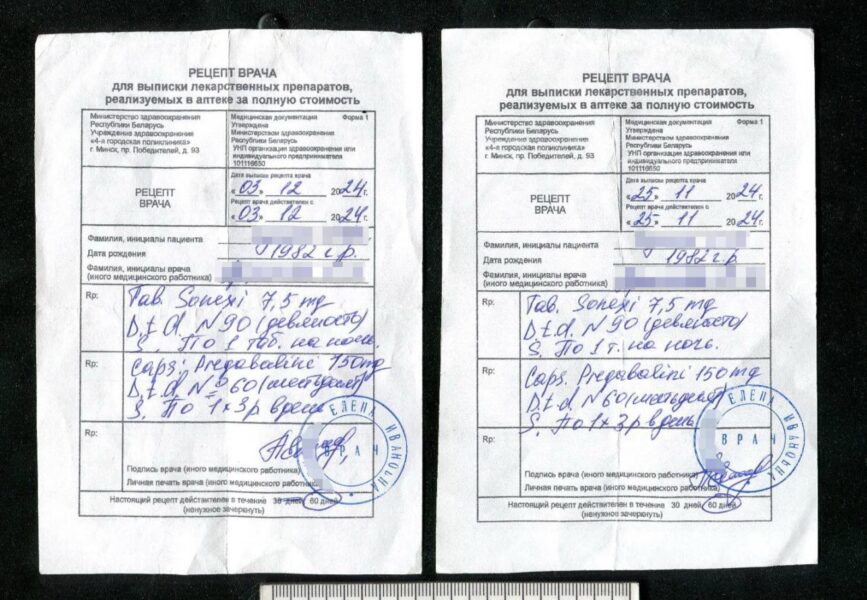 РЕЦЕПТ ВРАЧА
для выписки лекарственных препаратов,
реализуемых в аптеке за полную стоимость
Министерство здравоохранения
Республики Беларусь
Учреждение здравоохранения
«4-я городская поликлиника»
г. Минск, пр. Победителей, д. 93
Медицинская документация Форма 1
Утверждена
Министерством здравоохранения
Республики Беларусь
УНП организации здравоохранения или
индивидуального предпринимателя
101116650
РЕЦЕПТ
ВРАЧА
Дата выписки рецепта врача
«03» 12 2024г.
Рецепт врача действителен с
«03» 12 2024г.
Фамилия, инициалы пациента
Дата рождения 1982 г.р.
Фамилия, инициалы врача
(иного медицинского работника)
Rp: Tab. Sonexi 7,5 mg
D.t.d. N 90 (девяносто)
S. По 1 таб. на ночь.
Rp: Caps. Pregabalini 150mg
D.t.d. N 60 (шестьдесят)
S. По 1 х 3 р в день
Rp:
ЕЛЕНА ИВАНОВНА
ВРАЧ
Подпись врача (иного медицинского работника)
Личная печать врача (иного медицинского работника)
Настоящий рецепт действителен в течение 30 дней 60 дней
(ненужное зачеркнуть)
РЕЦЕПТ ВРАЧА
для выписки лекарственных препаратов,
реализуемых в аптеке за полную стоимость
Министерство здравоохранения
Республики Беларусь
Учреждение здравоохранения
«4-я городская поликлиника»
г. Минск, пр. Победителей, д. 93
Медицинская документация Форма 1
Утверждена
Министерством здравоохранения
Республики Беларусь
УНП организации здравоохранения или
индивидуального предпринимателя
101116650
РЕЦЕПТ
ВРАЧА
Дата выписки рецепта врача
«25» 11 2024г.
Рецепт врача действителен с
«25» 11 2024г.
Фамилия, инициалы пациента
Дата рождения 1982 г.р.
Фамилия, инициалы врача
(иного медицинского работника)
Rp: Tab. Sonexi 7,5 mg
D.t.d. N 90 (девяносто)
S. По 1 т. на ночь.
Rp: Caps. Pregabalini 150 mg
D.t.d. N 60 (шестьдесят)
S. По 1 х 3 р в день
Rp:
ЕЛЕНА ИВАНОВНА
ВРАЧ
Подпись врача (иного медицинского работника)
Личная печать врача (иного медицинского работника)
Настоящий рецепт действителен в течение 30 дней 60 дней
(ненужное зачеркнуть)